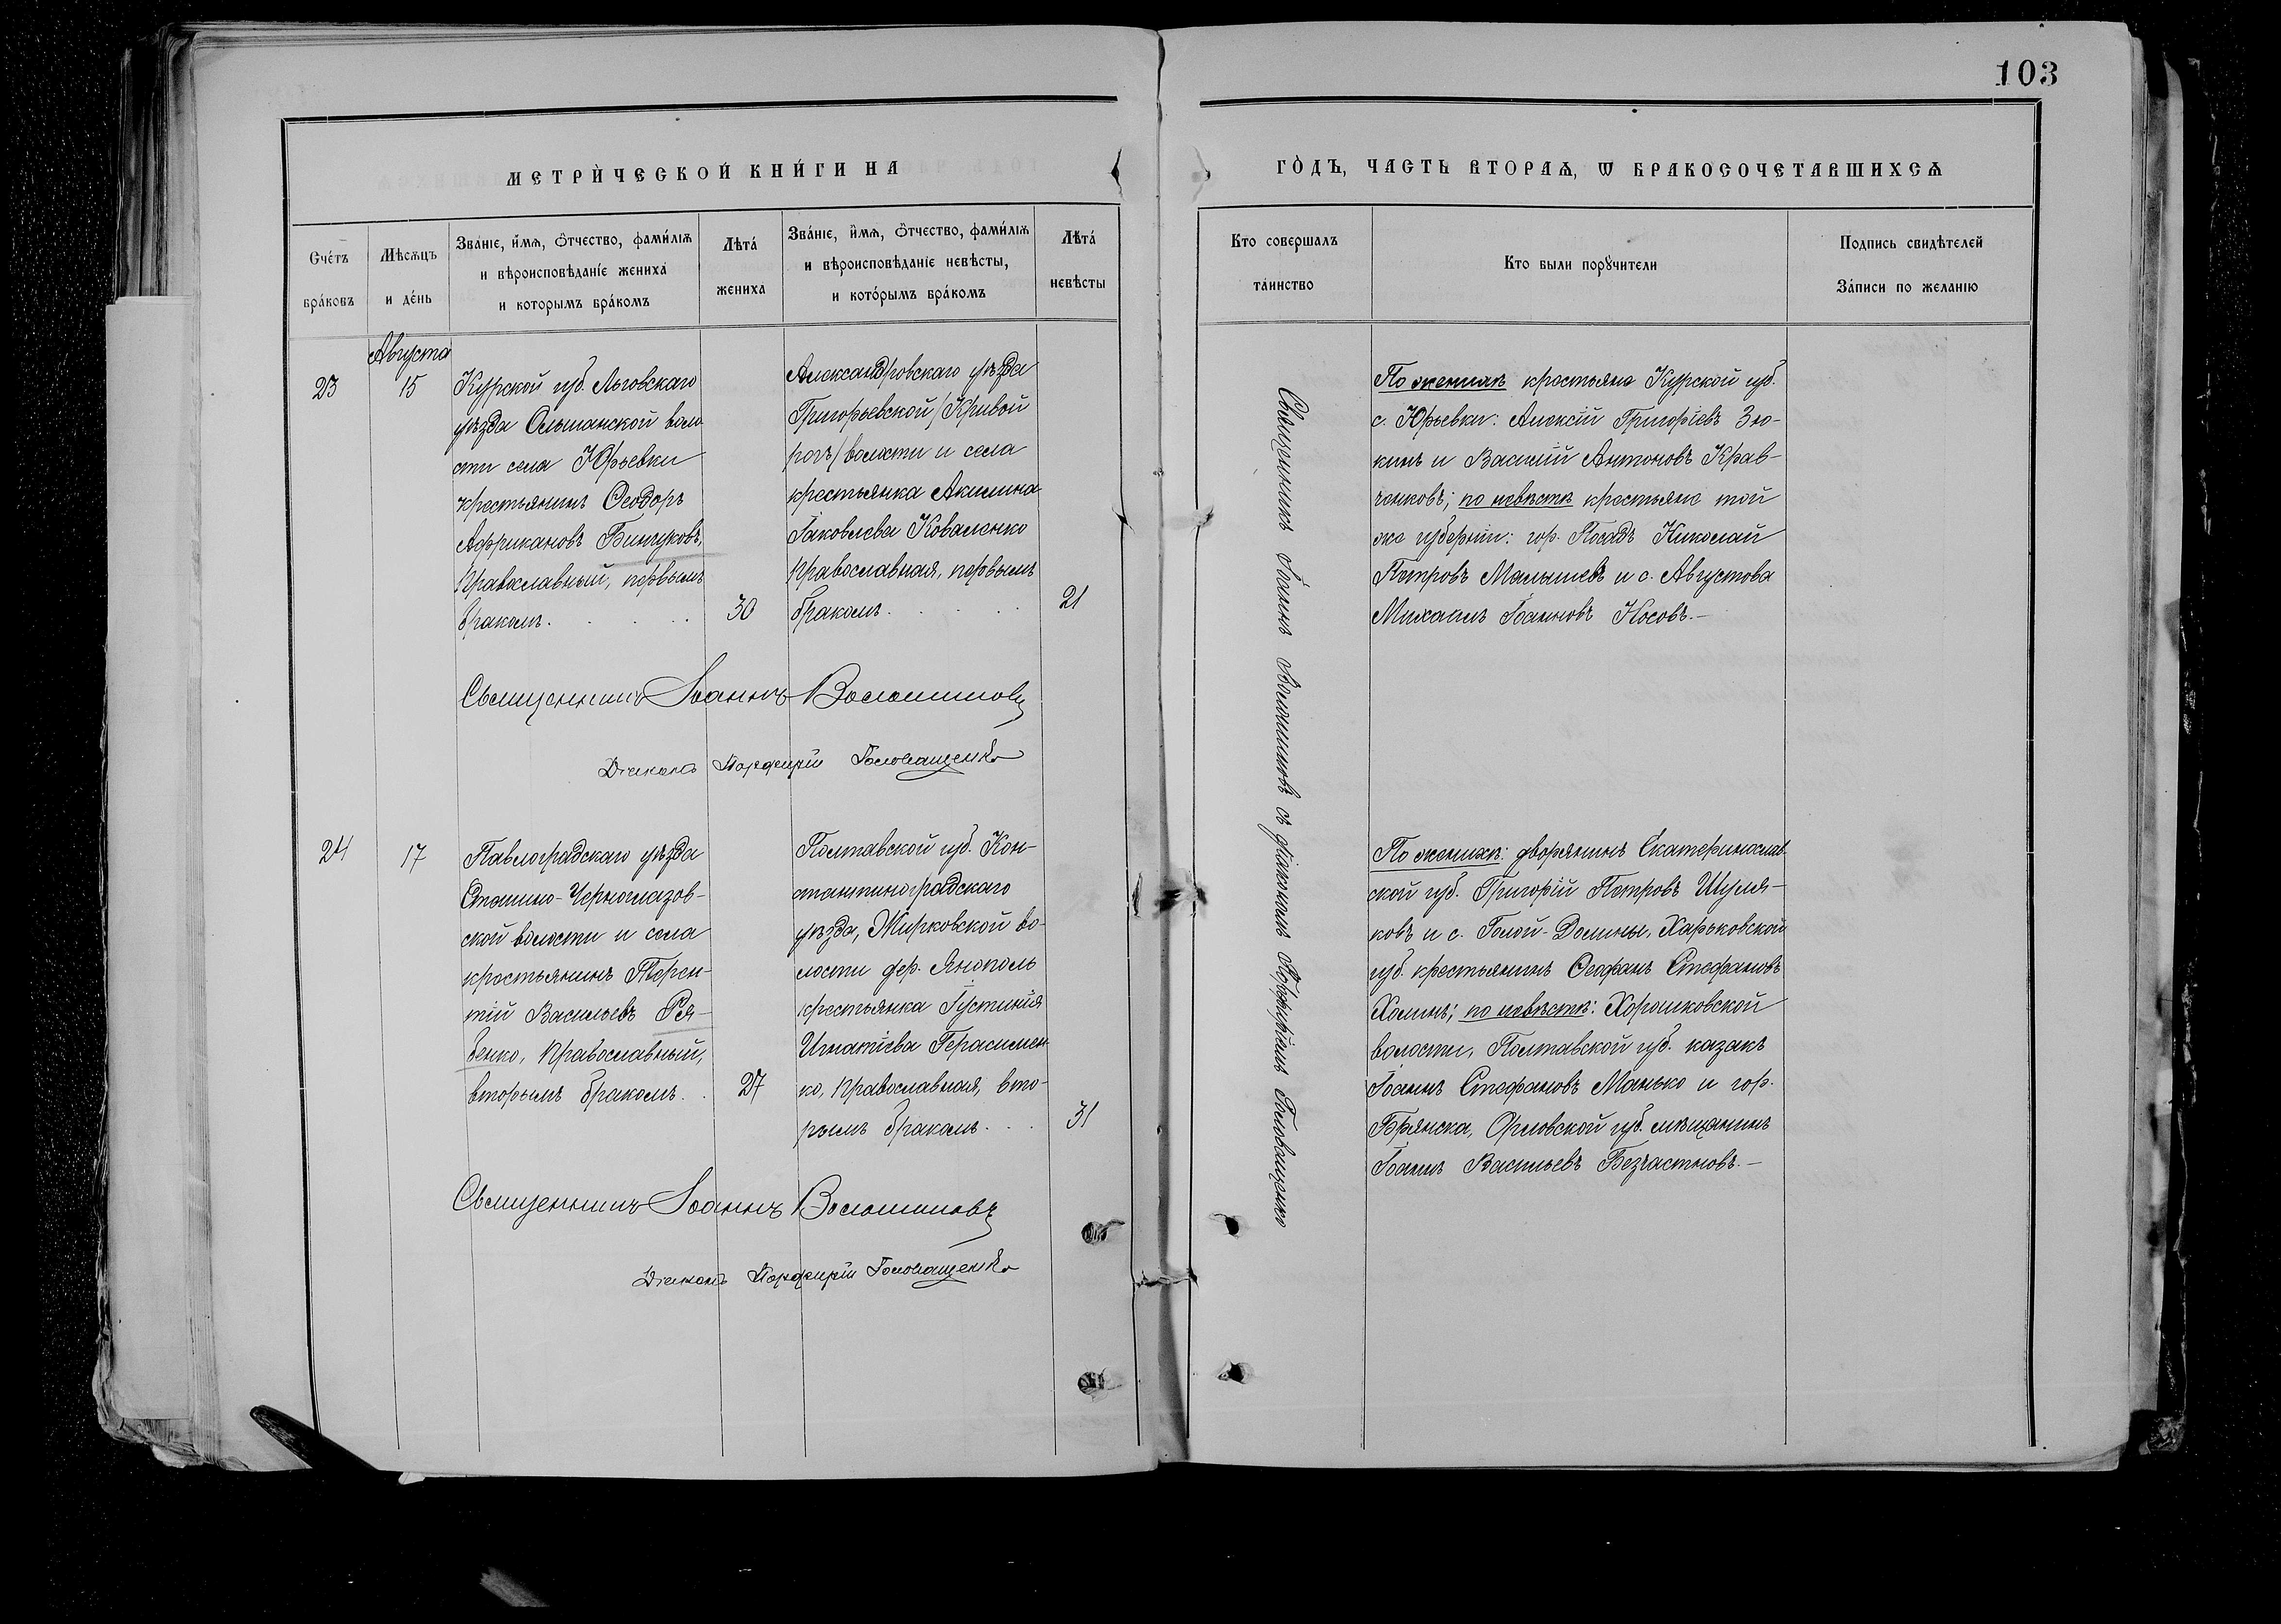 103
МЕТРИ́ЧЕСКОЙ КНИ́ГИ НА
ГО́ДЪ, ЧАСТЬ ВТОРАѦ, Ѿ БРАКОСОЧЕТАВШИХСѦ
Сче́тъ бра́ковъ
Мѣсѧцъ и де́нь
Зва́нїе, и́мѧ, о́тчество, фами́лїѧ
и вѣроисповѣданїе жениха̀
и которымъ бра́комъ
Лѣта́ жениха
Зва́нїе, и́мѧ, о́тчество, фами́лїѧ
и вѣроисповѣданїе невѣсты,
и кото́рымъ бра́комъ
Лѣта́ невѣсты
Кто совершалъ та́инство
Кто были порꙋчители
Подпись свидѣтелей
За́писи по желанїю
Августа
23
15
Курской губ. Льговскаго
уѣзда Ольшанской воло
сти села Юрьевки
крестьянинъ Ѳеодоръ
Африкановъ Бинчуковъ,
православный, первымъ
бракомъ.
30
Александровскаго уѣзда
Григорьевской /Кривой
рогъ/ волости и села
крестьянка Акилина
Іаковлева Коваленко
православная, первымъ
бракомъ.
21
Священникъ Іоаннъ Волошиновъ
Діаконъ Порфирій Головащенко
Священникъ Іоаннъ Волошиновъ съ діакономъ Порфиріемъ Головащенко
По женихѣ крестьяне Курской губ.
с. Юрьевки: Алексій Григоріевъ Зю-
кинъ и Василій Антоновъ Крав-
ченковъ; по невѣстѣ крестьяне той
же губерніи: гор. Посадъ Николай
Петровъ Малышевъ и с. Августова
Михаилъ Іоанновъ Носовъ.-
24
17
Павлоградскаго уѣзда
Отошино-Черноглазов-
ской волости и села
крестьянинъ Терен-
тій Васильевъ Ря-
бенко, православный,
вторымъ бракомъ.
27
Полтавской губ. Кон-
стантиноградскаго
уѣзда, Жирковской во-
лости дер. Янополь
крестьянка Іустинія
Игнатіева Герасимен-
ко, православная, вто-
рымъ бракомъ.
31
По женихѣ: дворянинъ Екатеринослав-
ской губ. Григорій Петровъ Шуля-
ковъ и с. Голой-Долины, Харьковской
губ. крестьянинъ Ѳеофанъ Стефановъ
Холинъ; по невѣстѣ: Хорошковской
волости, Полтавской губ. казакъ
Іоаннъ Стефановъ Манько и гор.
Брянска, Орловской губ. мѣщанинъ
Іоаннъ Васильевъ Безчастновъ.-
Священникъ Іоаннъ Волошиновъ
Діаконъ Порфирій Головащенко